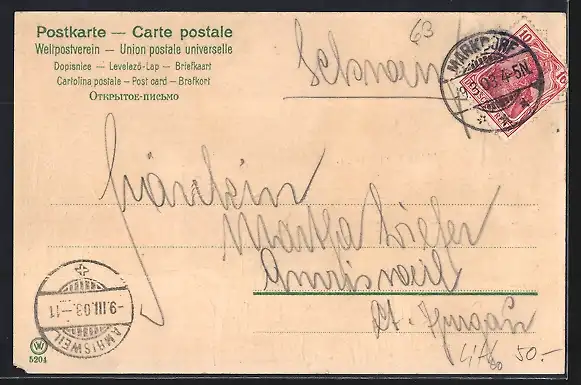 Postkarte — Carte postale
Weltpostverein — Union postale universelle
Dopisnice — Levelező-Lap — Briefkaart
Cartolina postale — Post card — Brefkort
Открытое-письмо
63
MARKDORF
03. 4-5N.
10
10
Fräulein
Martha
Amrisweil
Ct. Thurgau
-9.III.03.-11
AMRISWEIL
5204
50.-